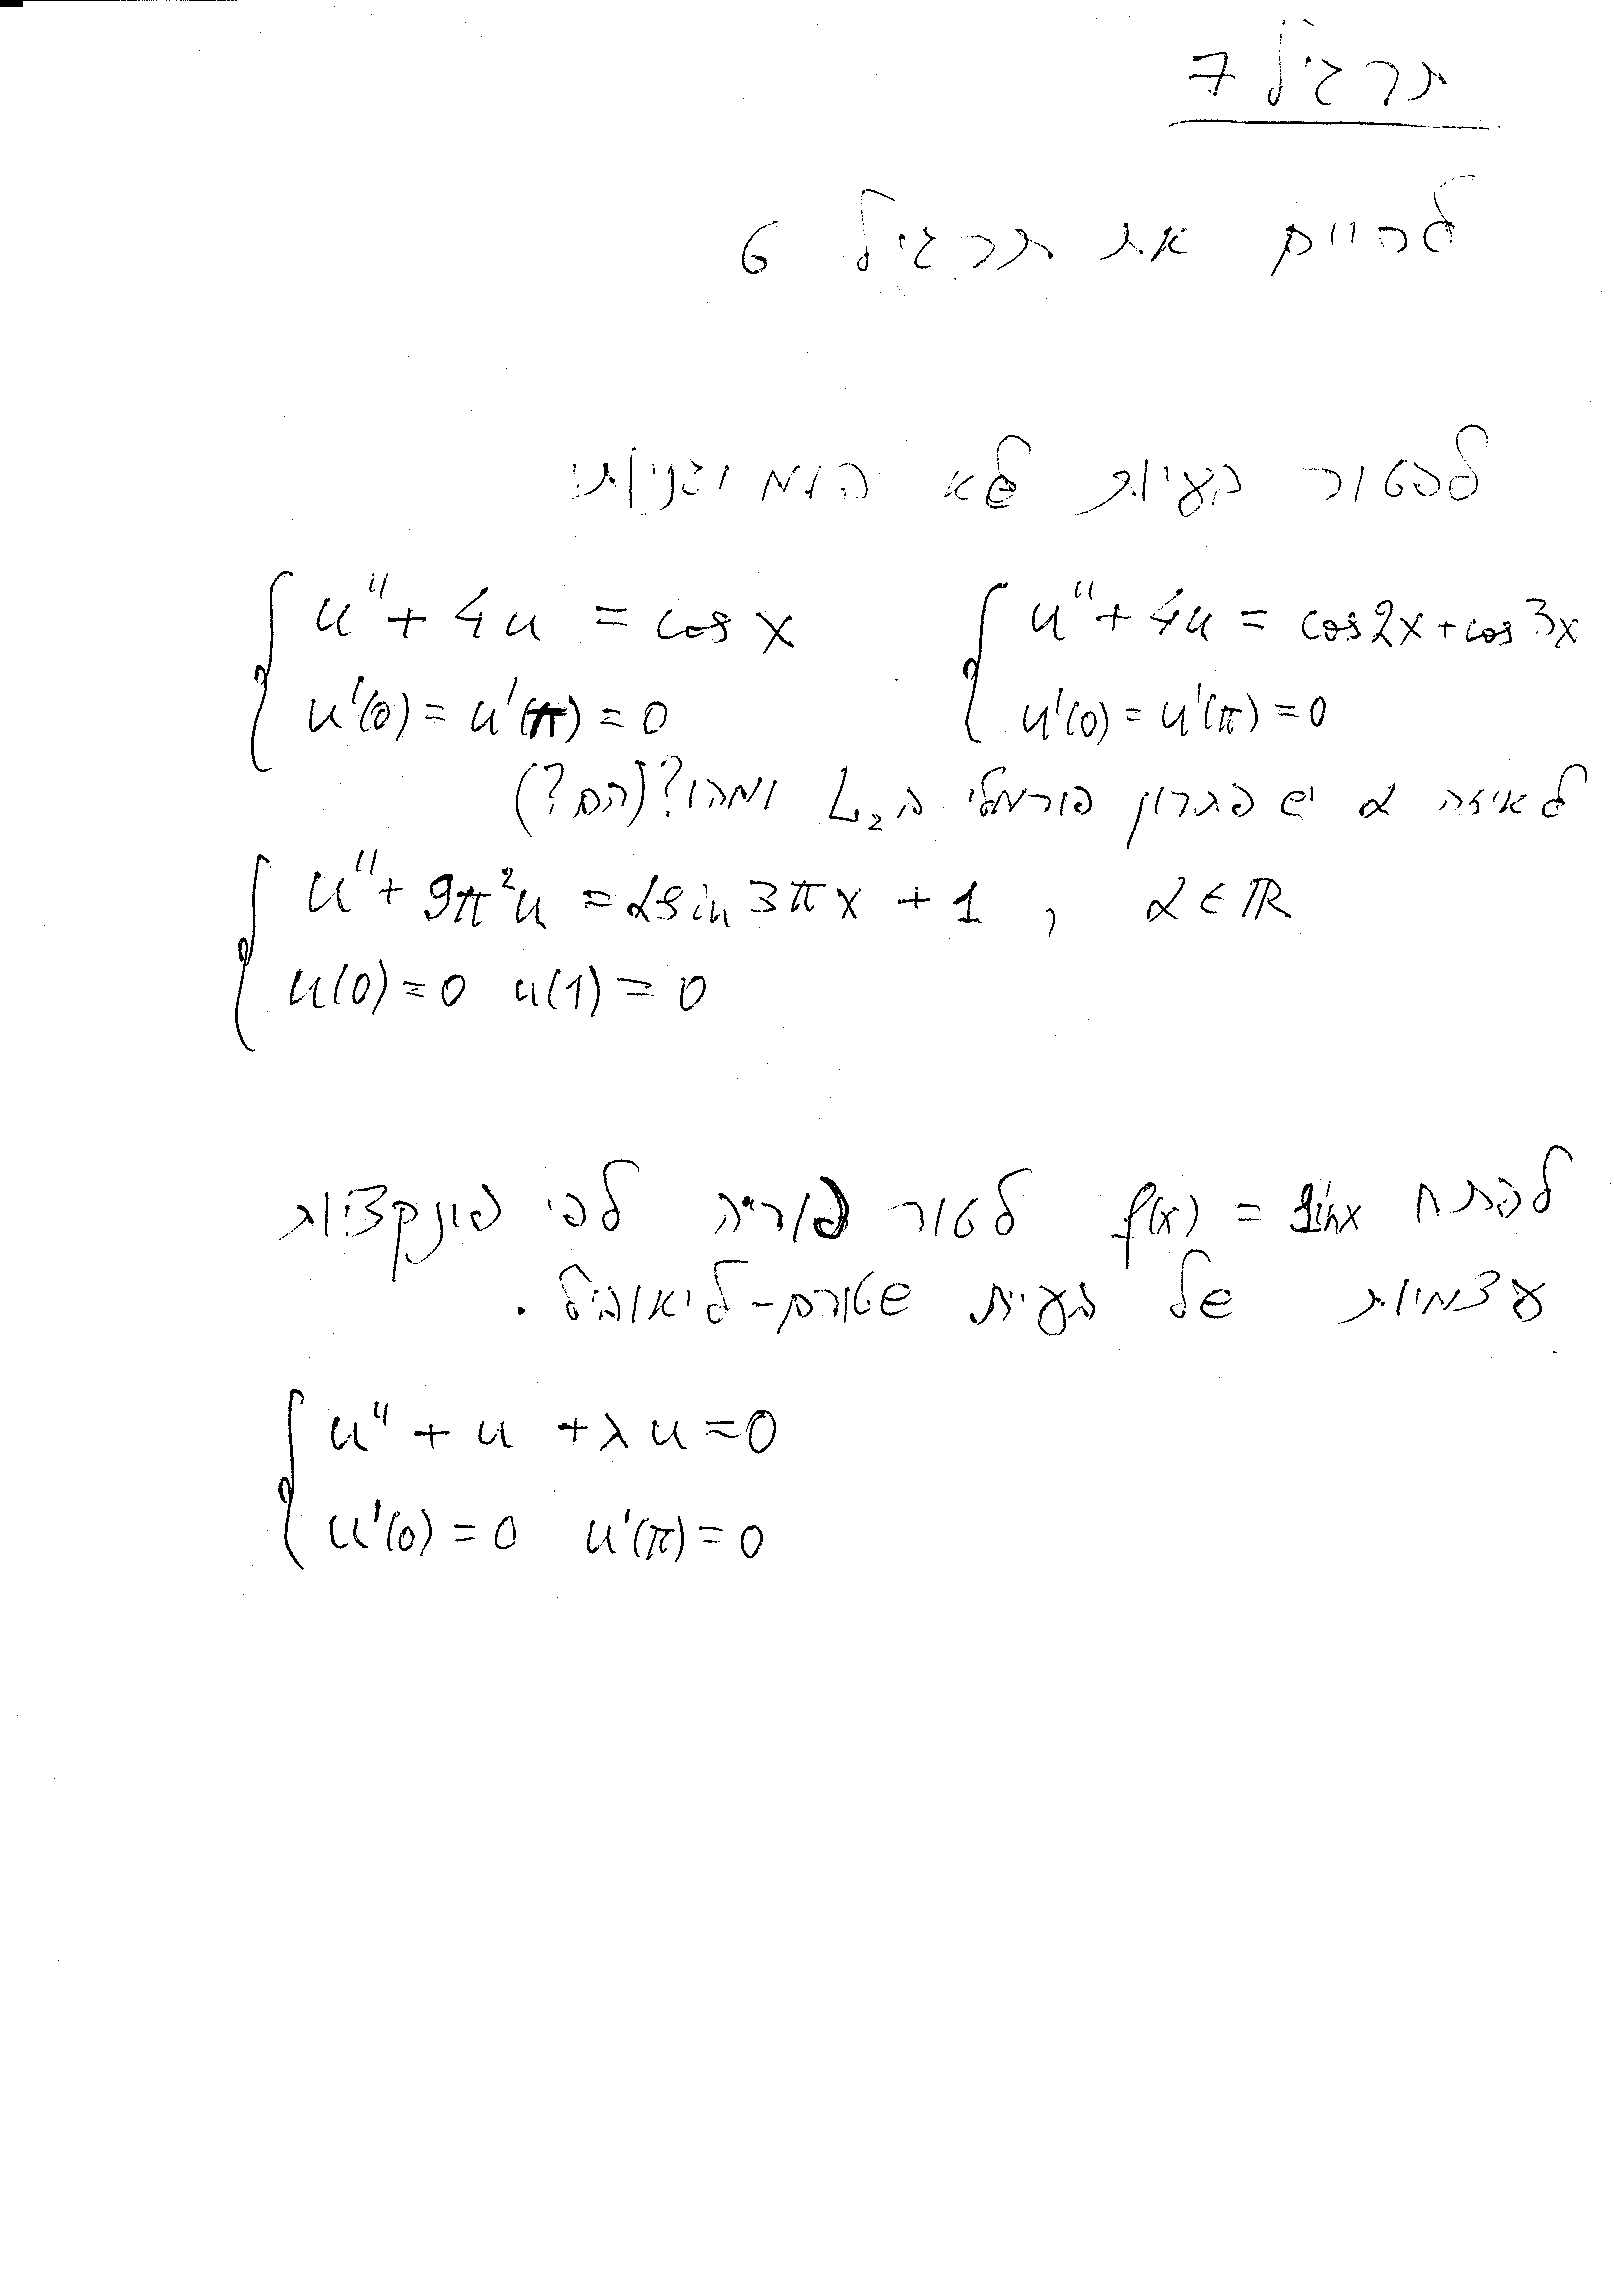 תרגיל 7
לסיים את תרגיל 6
לפטור בעיות לא הומוגניותי
u'' + 4u = cos x    u'' + 4u = cos 2x + cos 3x
u'(0) = u'(π) = 0    u'(0) = u'(π) = 0
לאיזה α יש פתרון פורמלי ב L₂ ומהו? (הם?)
u'' + 9π²u = α sin 3πx + 1 , α ∈ ℝ
u(0) = 0 u(1) = 0
לפתח f(x) = sin x לטור פוריה לפי פונקציות
עצמיות של בעית שטורם-ליאוביל.
u'' + u + λu = 0
u'(0) = 0 u'(π) = 0